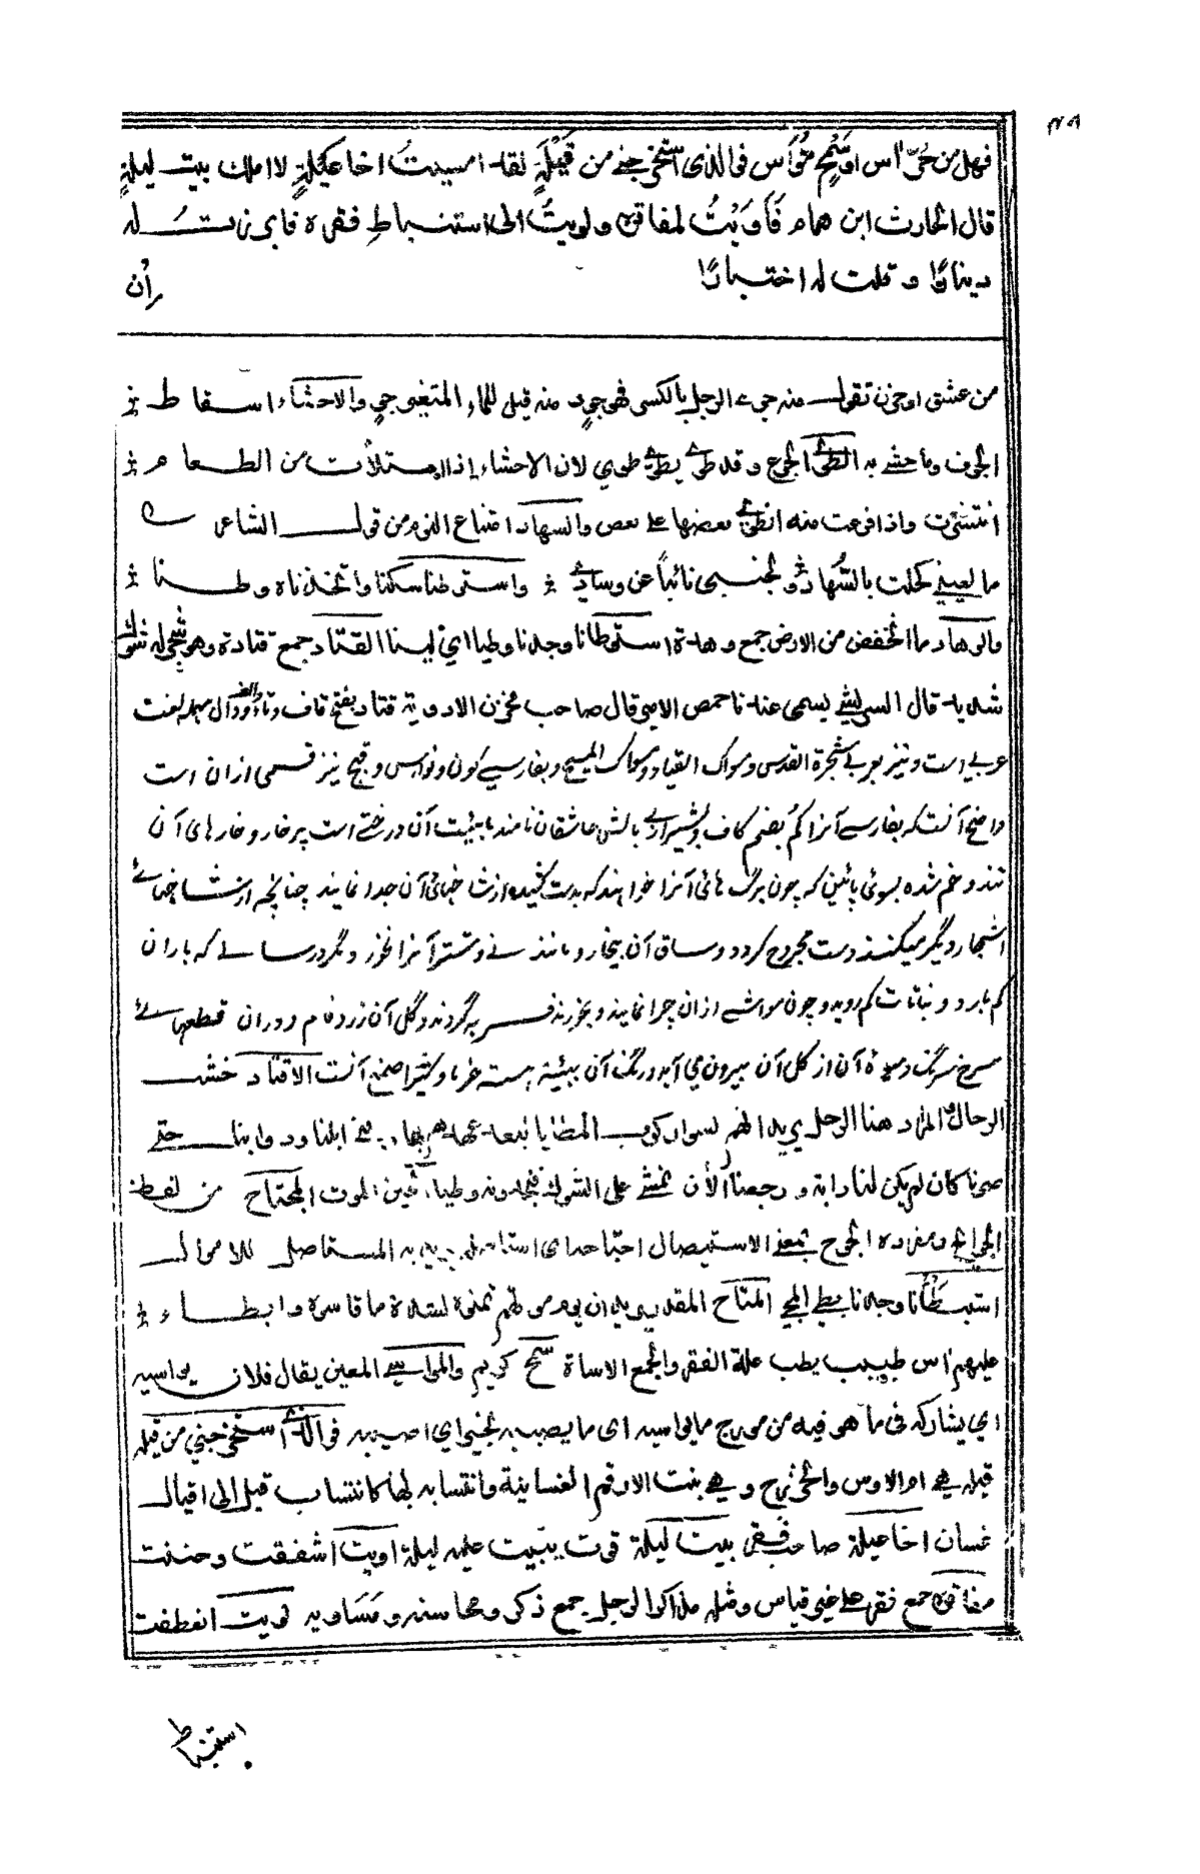 ٣٨
فهل من حُرٍّ اٰس او سَمْحٍ مُؤَاسٍ فوالذى استخرجنى من قَيْلَةَ لقد امسيتُ اخا عَيْلَةٍ لا املك بيت ليلةٍ
قال الحارث ابن همام فَاَوَيْتُ لمفاقره ولويتُ الى استنباطِ فقره فابرزتُ له
دينارًا وقلت له اختبارًا اِن
من عشق او حزن تقول منه جوى الرجل بالكسر فهو جوٍ ومنه قيل للماء المتغير جوٍ والاحشاء اسقاط
الجوف وما حشى به الطوى الجوع وقد طوى يطوى طوي لان الاحشاء اذا امتلأت من الطعام
انتشرت واذا فرغت منه انطوى بعضها على بعض والسهاد امتناع النوم من قول الشاعر
ما لعينى كحلت بالسُّهاد ولجنبى نائباً عن وسادى واستوطنا سكنا واتخذناه وطنا
والوهاد ما انخفض من الارض جمع وهدة استوطأنا وجدنا وطيا اي لينا القتاد جمع قتادة وهو شجر له شوك
شديد قال الشريشى يسمى عندنا حمص الامير قال صاحب مخزن الادوية قتاد بفتح قاف وتاء والف ودال مهمله لغت
عربى است ونیز بعربى شجرة القدس ومسواك القياد ومسواك المسيح وبفارسى كون و وقیح نیز قسمی ازان است
واضح آنست که بفارسی آنرا کم بضم کاف وبشیرازی بالش عاشقان نامند ماهیئت آن درختی است پرخار وخارهای آن
تند وخم شده بسوی پائین که چون برگ هائی آنرا خواهند که بدست کشیده از شاخهائی آن جدا نمایند چنانچه از شاخهائے
اشجار دیگر میکنند دست مجروح گردد وساق آن بیخار ومانند نے وشتر آنرا نخورد مگر در سالے که باران
کم بارد ونباتات کم روید وچون مواشی ازان چرا نمایند وبخورند فربه گردند وگل آن زرد فام ودران قطعهائے
سرخ رنگ ومیوۀ آن از گل آن بیرون می آید ورنگ آن بهیئة هسته خرما وکتیرا صمغ آنست الاقتاد خشب
الرحال والمراد هنا الرحل يريد انهم لسوا ركوب المطايا لبعد عهدهم بها يعنى ابلنا ودوابنا حتى
صرنا كان لم يكن لنا دابة ورجعنا الآن نمشى على الشوك فنجده وطيا الحين الموت المجتاح من لفظ
الجوائح ومفرده الجوح بمعنى الاستيصال اجتاحه اى استأصله يريد به المستاصل للاموال
استبطأنا وجدنا بطى المجى المتاح المقدر يريد ان يوم موتهم تمنوه لشدة ما قاسوه وابطاء
عليهم اٰس طبيب يطب علة الفقر والجمع الاساة سمح كريم والمواسى المعين يقال فلان يواسيه
اي يشاركه فى ما هو فيه من مورج ما يواسيه اى ما يصيبه بخير اي اصيبه فوالذى استخرجنى من قيلة
قيلة هى ام الاوس والخزرج وهى بنت الارقم الغسانية وانتسابه لها كانتساب قبل الى اقيال
غسان اخا عيلة صاحب فقر بيت ليلة قوت يبيت عليه ليلة اويت اشفقت وحننت
مفاقره جمع فقر على غير قياس ومثله مذاكر الرجل جمع ذكر ومحاسنه ومَسَاويه لويت انعطفت
استنباط